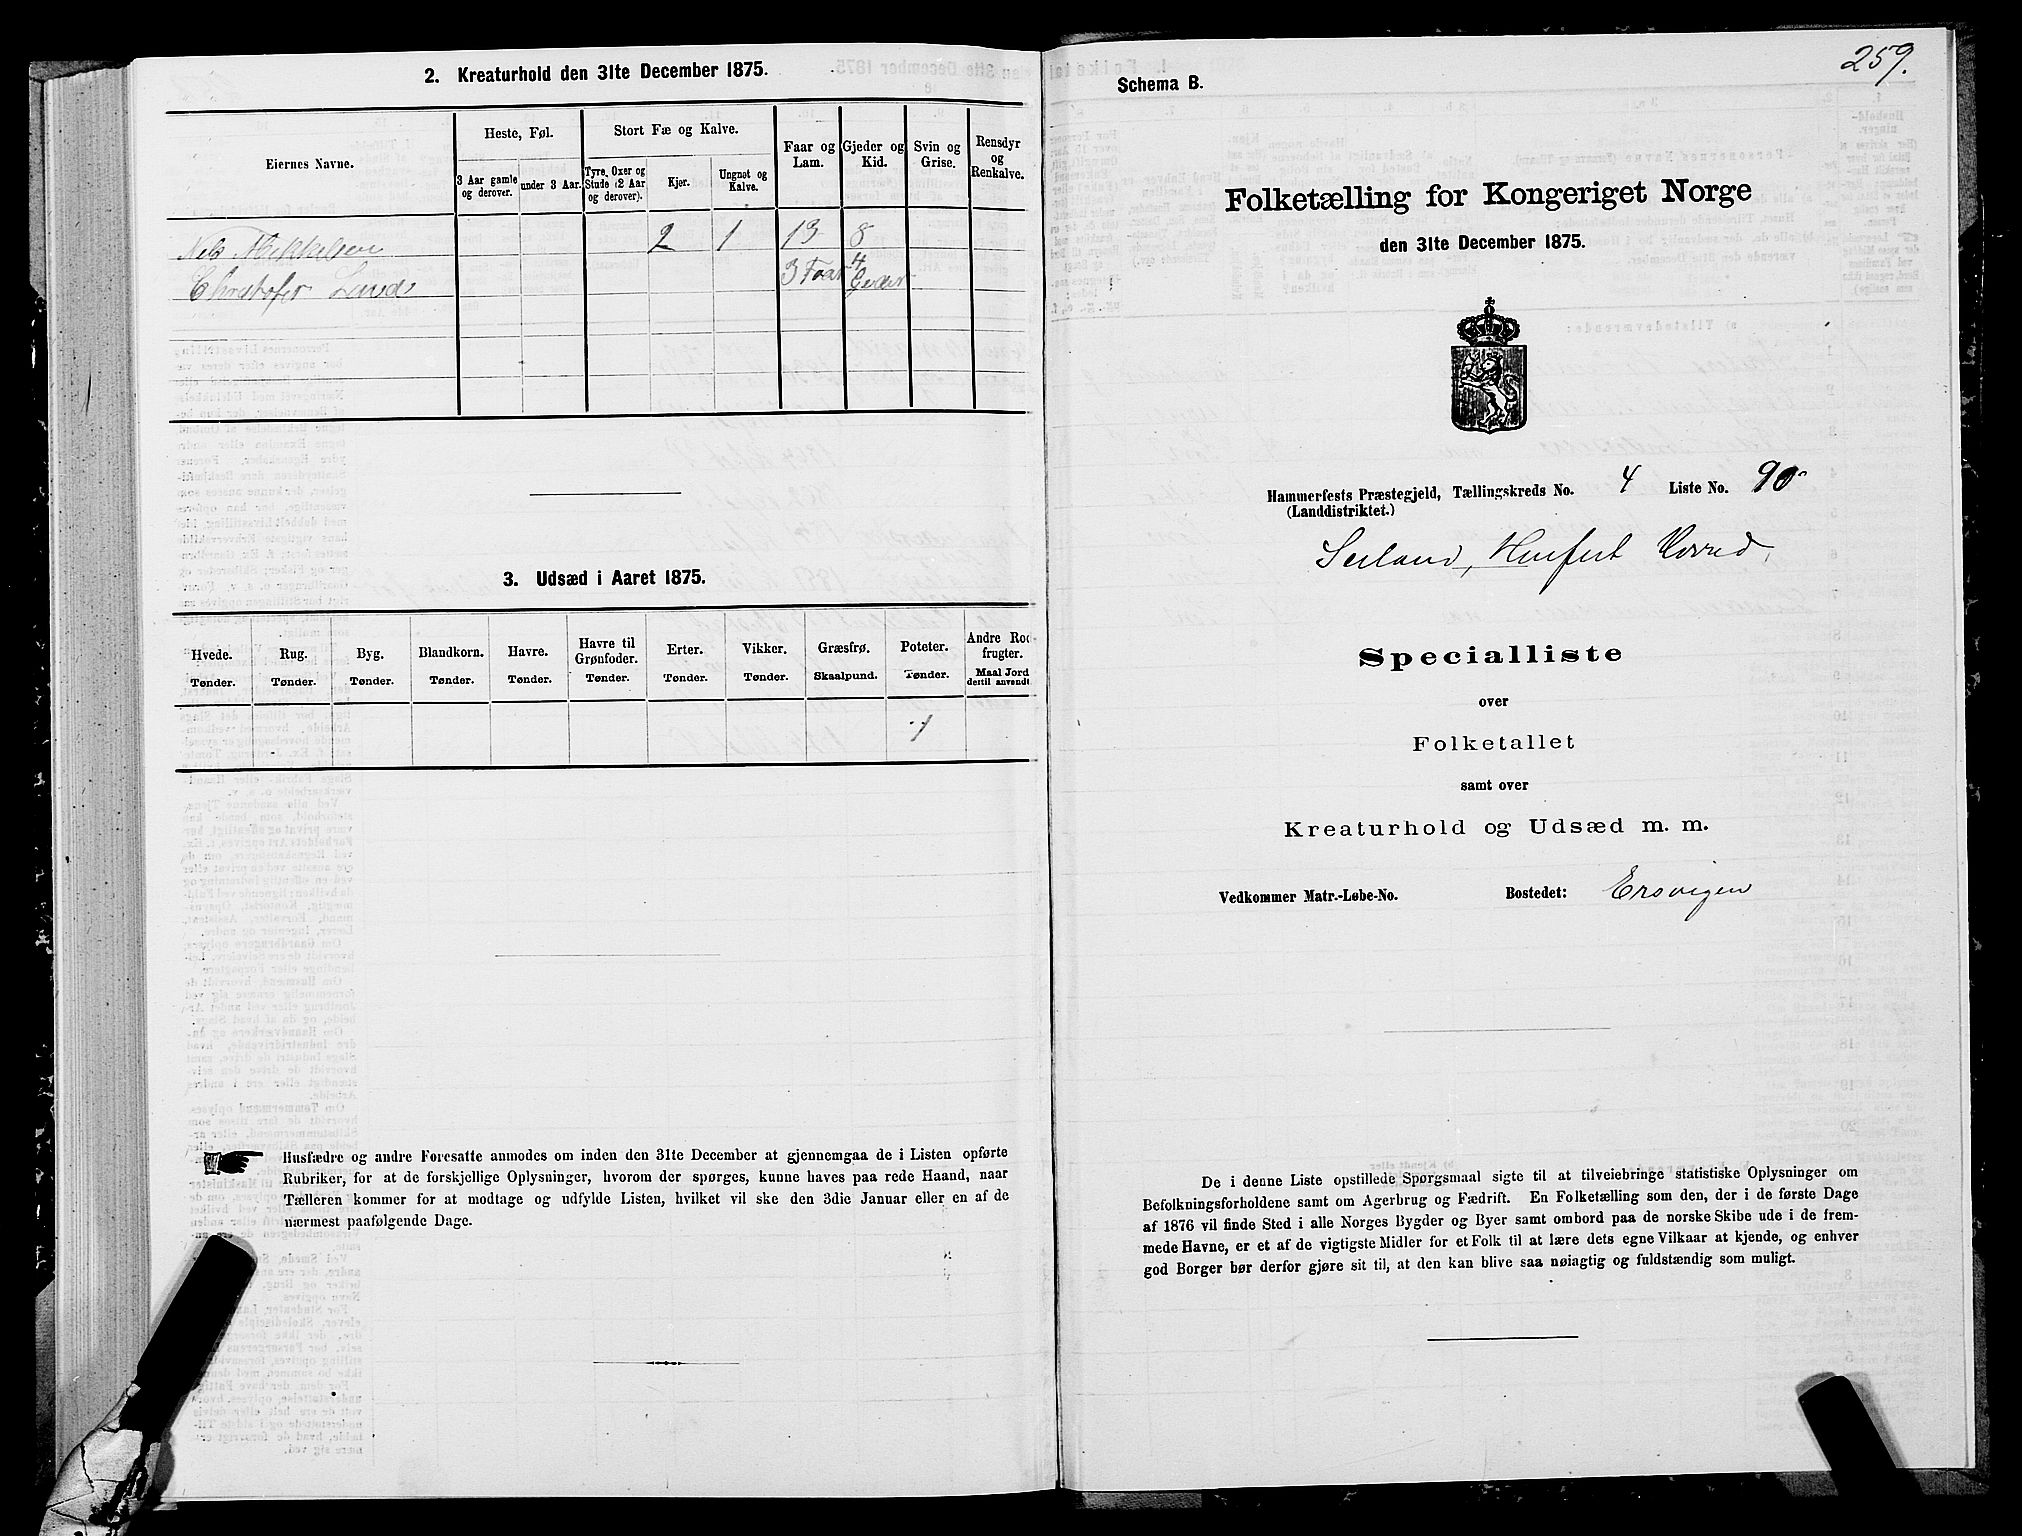 2. Kreaturhold den 31te December 1875.
Eiernes Navne.
Heste, Føl.
Stort Fæ og Kalve.
Faar og Lam.
Gjeder og Kid.
Svin og Grise.
Rensdyr og Renkalve.
3 Aar gamle og derover.
under 3 Aar.
Tyre, Oxer og Stude (2 Aar og derover).
Kjør.
Ungnøt og Kalve.
Nels Mikkelsen 2 1 13 8
Christofer Lund 3 Faar 4 Geder
3. Udsæd i Aaret 1875.
Hvede. Rug. Byg. Blandkorn. Havre. Havre til Grønfoder. Erter. Vikker. Græsfrø. Poteter. Andre Rodfrugter.
Tønder. Tønder. Tønder. Tønder. Tønder. Tønder. Tønder. Tønder. Skaalpund. Tønder. Maal Jord dertil anvendt.
1
Husfædre og andre Foresatte anmodes om inden den 31te December at gjennemgaa de i Listen opførte
Rubriker, for at de forskjellige Oplysninger, hvorom der spørges, kunne haves paa rede Haand, naar
Tælleren kommer for at modtage og udfylde Listen, hvilket vil ske den 3die Januar eller en af de
nærmest paafølgende Dage.
259.
Schema B.
Folketælling for Kongeriget Norge
den 31te December 1875.
Hammerfests Præstegjeld, Tællingskreds No. 4 Liste No. 90
(Landdistriktet.)
Seiland,
Specialliste
over
Folketallet
samt over
Kreaturhold og Udsæd m. m.
Vedkommer Matr.-Løbe-No. Bostedet: Ersvigen
De i denne Liste opstillede Spørgsmaal sigte til at tilveiebringe statistiske Oplysninger om
Befolkningsforholdene samt om Agerbrug og Fædrift. En Folketælling som den, der i de første Dage
af 1876 vil finde Sted i alle Norges Bygder og Byer samt ombord paa de norske Skibe ude i de frem-
mede Havne, er et af de vigtigste Midler for et Folk til at lære dets egne Vilkaar at kjende, og enhver
god Borger bør derfor gjøre sit til, at den kan blive saa nøiagtig og fuldstændig som muligt.